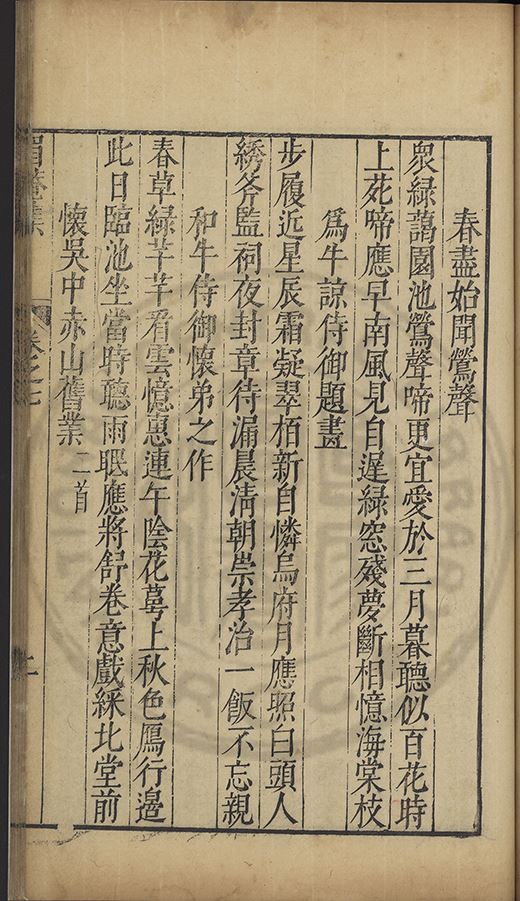 春盡始聞鶯聲
衆綠藹園池鶯聲啼更宜愛於三月暮聽似百花時
上苑啼應早南風見自遲綠窓殘夢斷相憶海棠枝
爲牛諒侍御題畫
步履近星辰霜凝翠栢新自憐烏府月應照白頭人
綉斧監祠夜封章待漏晨清朝崇孝治一飯不忘親
和牛侍御懷弟之作
春草綠芊芊看雲憶惠連午陰花萼上秋色鴈行邊
此日臨池坐當時聽雨眠應將舒卷意戲綵北堂前
懷吳中赤山舊業二首
眉菴集 卷之七